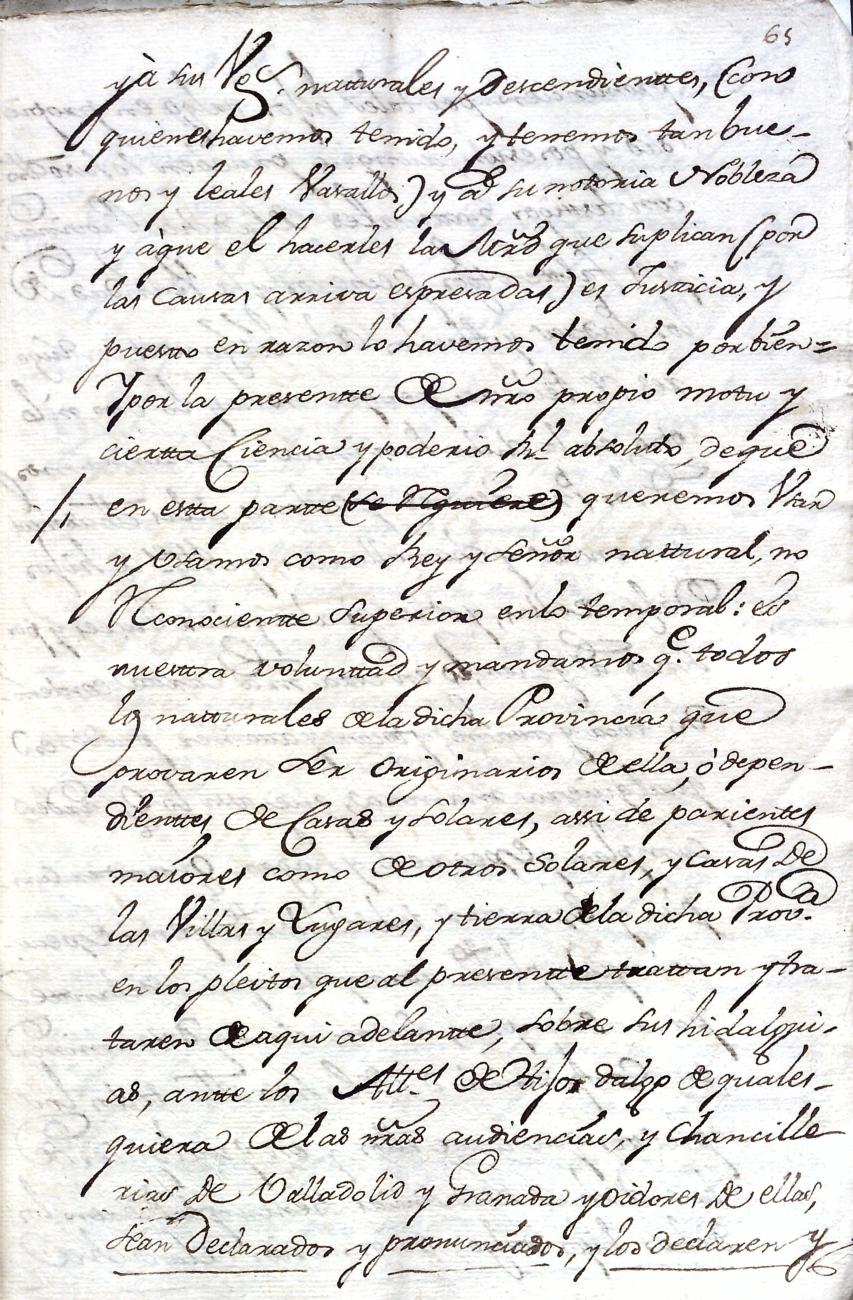 65
y à sus Vºs. natturales y Descendienttes, (con
quienes havemos tenido, y tenemos tan bue-
nos y leales Vasallos) y a su notoria Nobleza
y àque el hacerles la Mrd que suplican (por
las causas arriva espresadas) es Justicia, y
puesto en razon lo havemos tenido por bien=
Y por la presentte de nro propio motu y
cierta Ciencia y poderio Rl. absoluto, de que
en esta parte (se rrequiere) queremos Vsar
y Usamos como Rey y señor nattural, no
Rconociente Superior en lo temporal: es
nuestra voluntad y mandamos qe. todos
los natturales de la dicha Provincia que
provaren ser originarios de ella, ò depen-
dienttes de Casas y solares, assi de parientes
maiores como de otros solares, y casas De
las Villas y Lugares, y tierra de la dicha Prova.
en los pleitos que al presentte trattan y tra-
taren de aqui adelantte, sobre sus hidalgui-
as, antte los Alttes. de Hijos dalgo de quales-
quiera de las nras audiencias, y Chancille
rias De Valladolid y Granada y oidores De ellas,
sean Declarados y pronunciados, y los declaren y